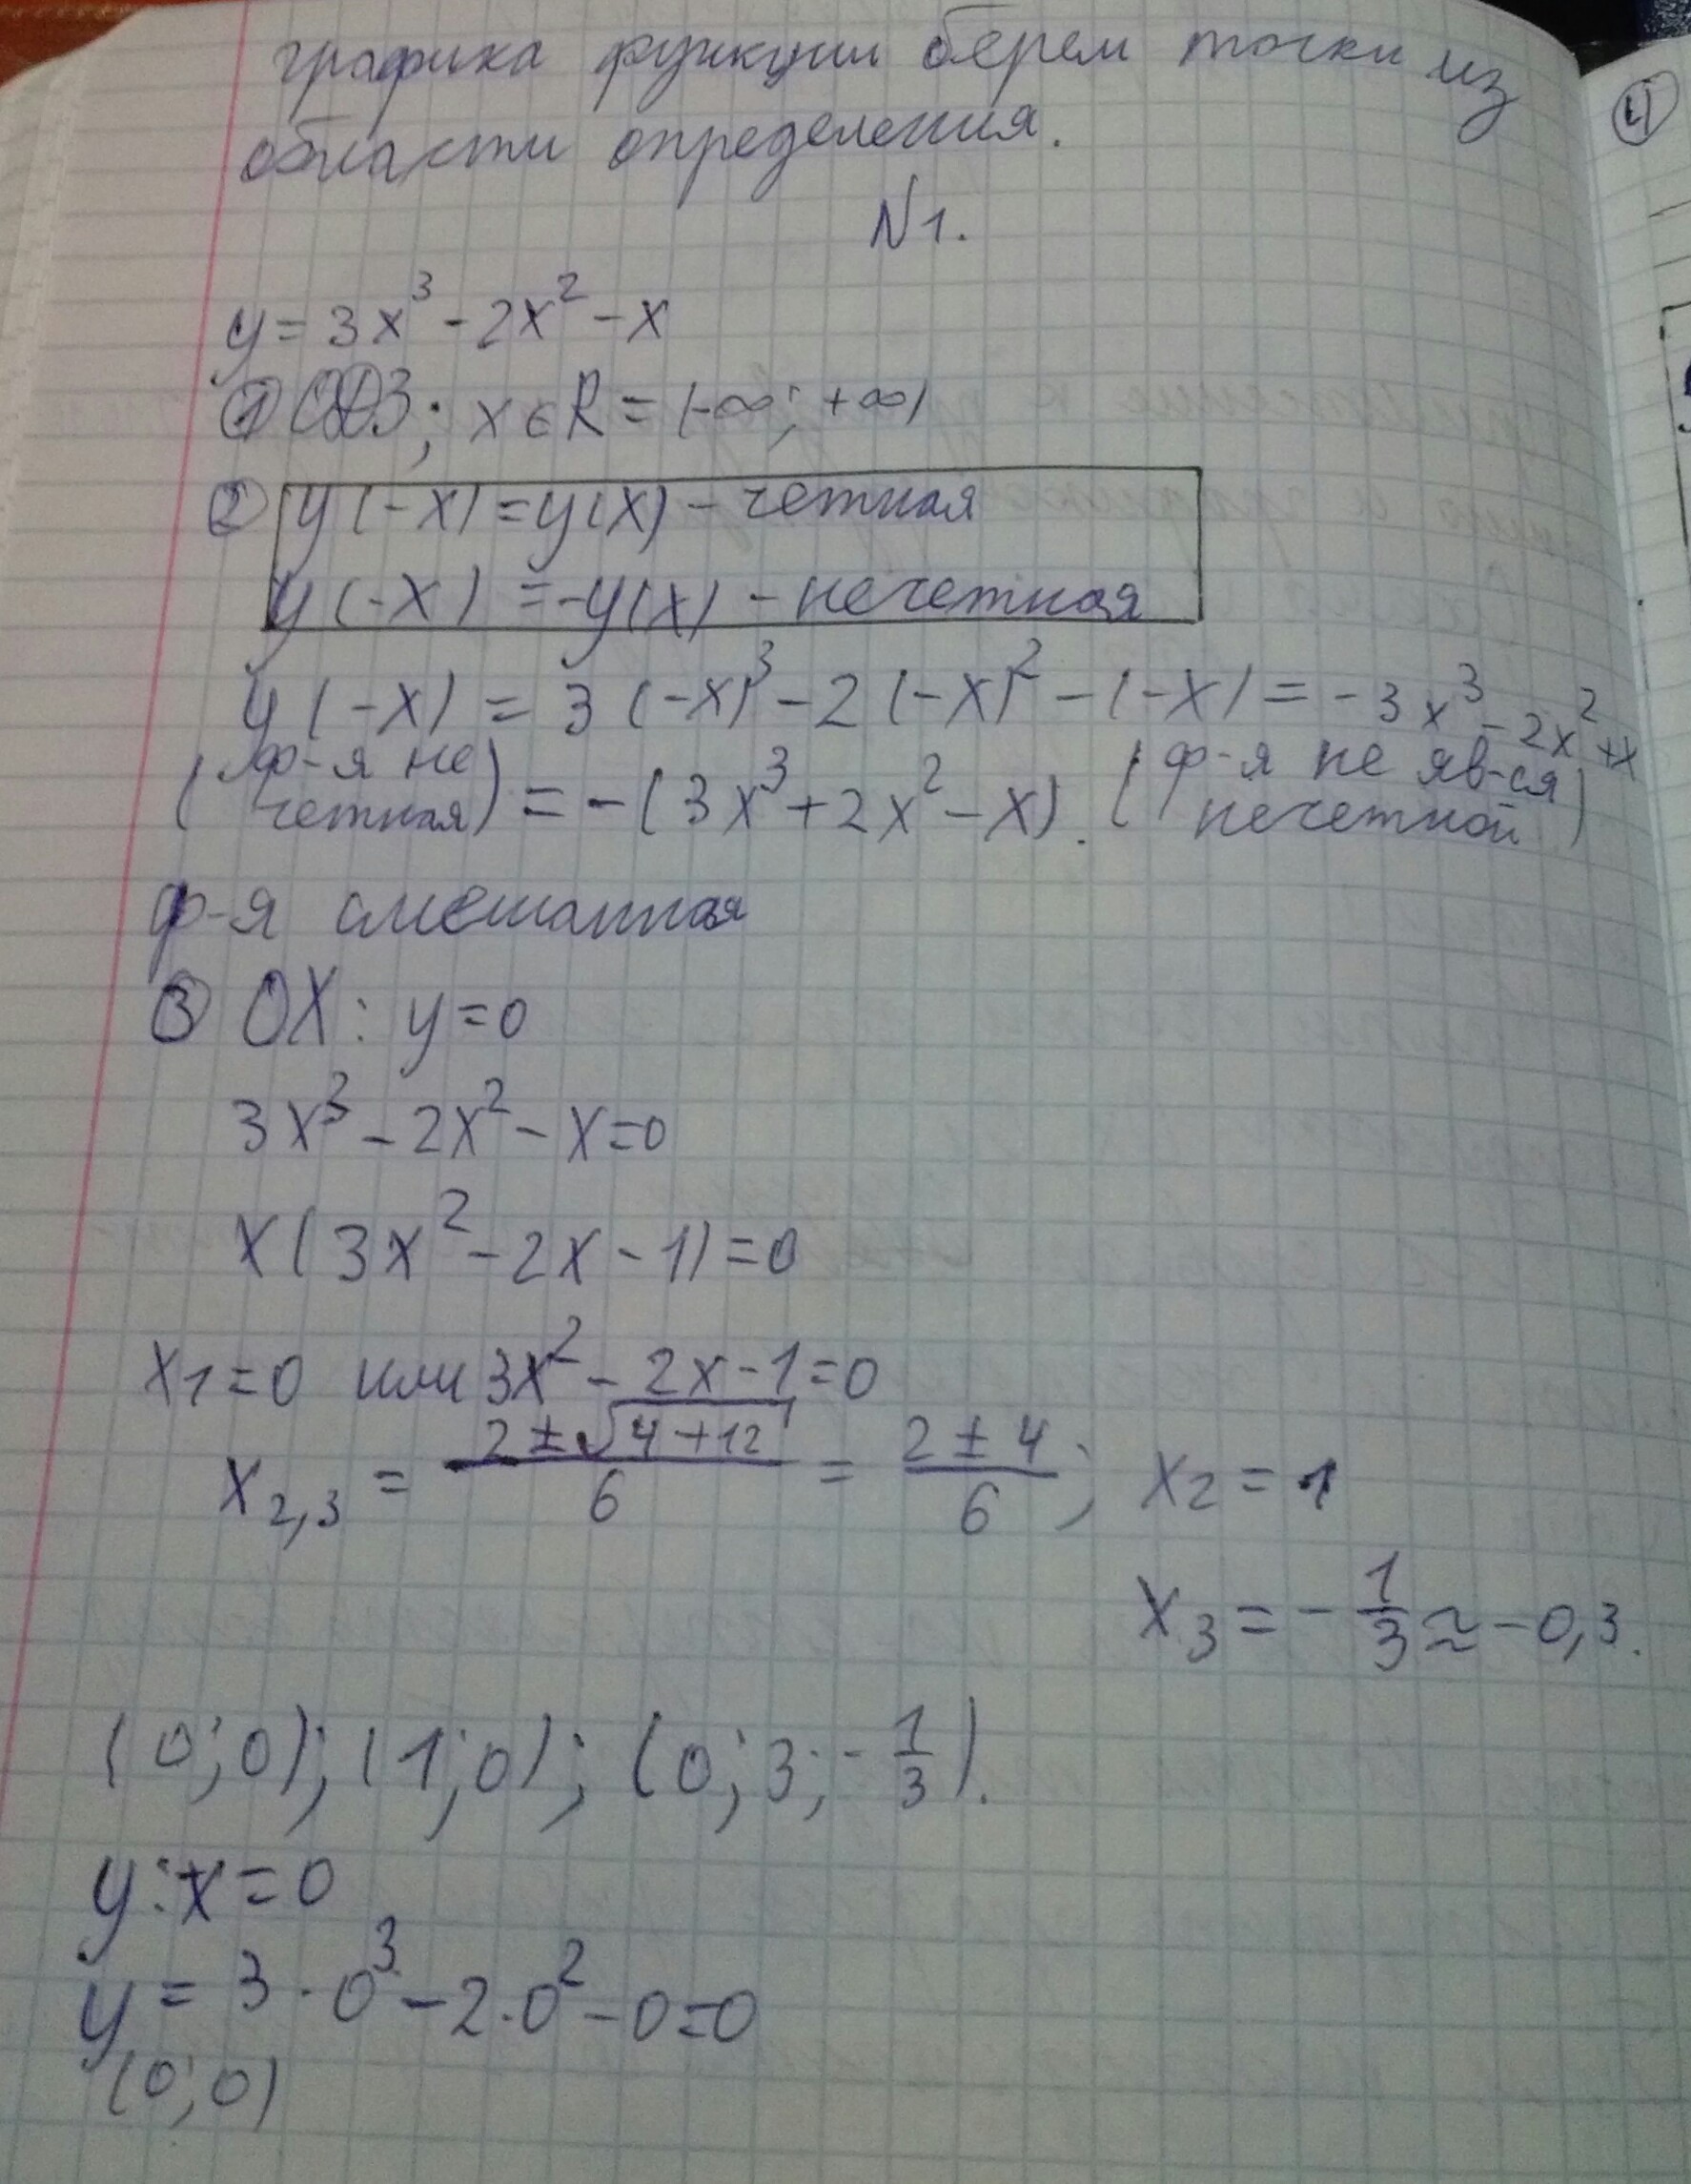 графика функции берем точки из
области определения.
N1.
y = 3x³ - 2x² - x
① ОДЗ; x ∈ R = (-∞; +∞)
② y(-x) = y(x) - четная
y(-x) = -y(x) - нечетная
y(-x) = 3(-x)³ - 2(-x)² - (-x) = -3x³ - 2x² + x
(ф-я не четная) = -(3x³ + 2x² - x). (ф-я не яв-ся нечетной)
ф-я смешанная
③ OX: y = 0
3x³ - 2x² - x = 0
x(3x² - 2x - 1) = 0
x₁ = 0 или 3x² - 2x - 1 = 0
x₂,₃ = (2 ± √(4 + 12))/6 = (2 ± 4)/6; x₂ = 1
x₃ = -1/3 ≈ -0,3.
(0; 0); (1; 0); (0; 3; -1/3).
y: x = 0
y = 3 · 0³ - 2 · 0² - 0 = 0
(0; 0)
④